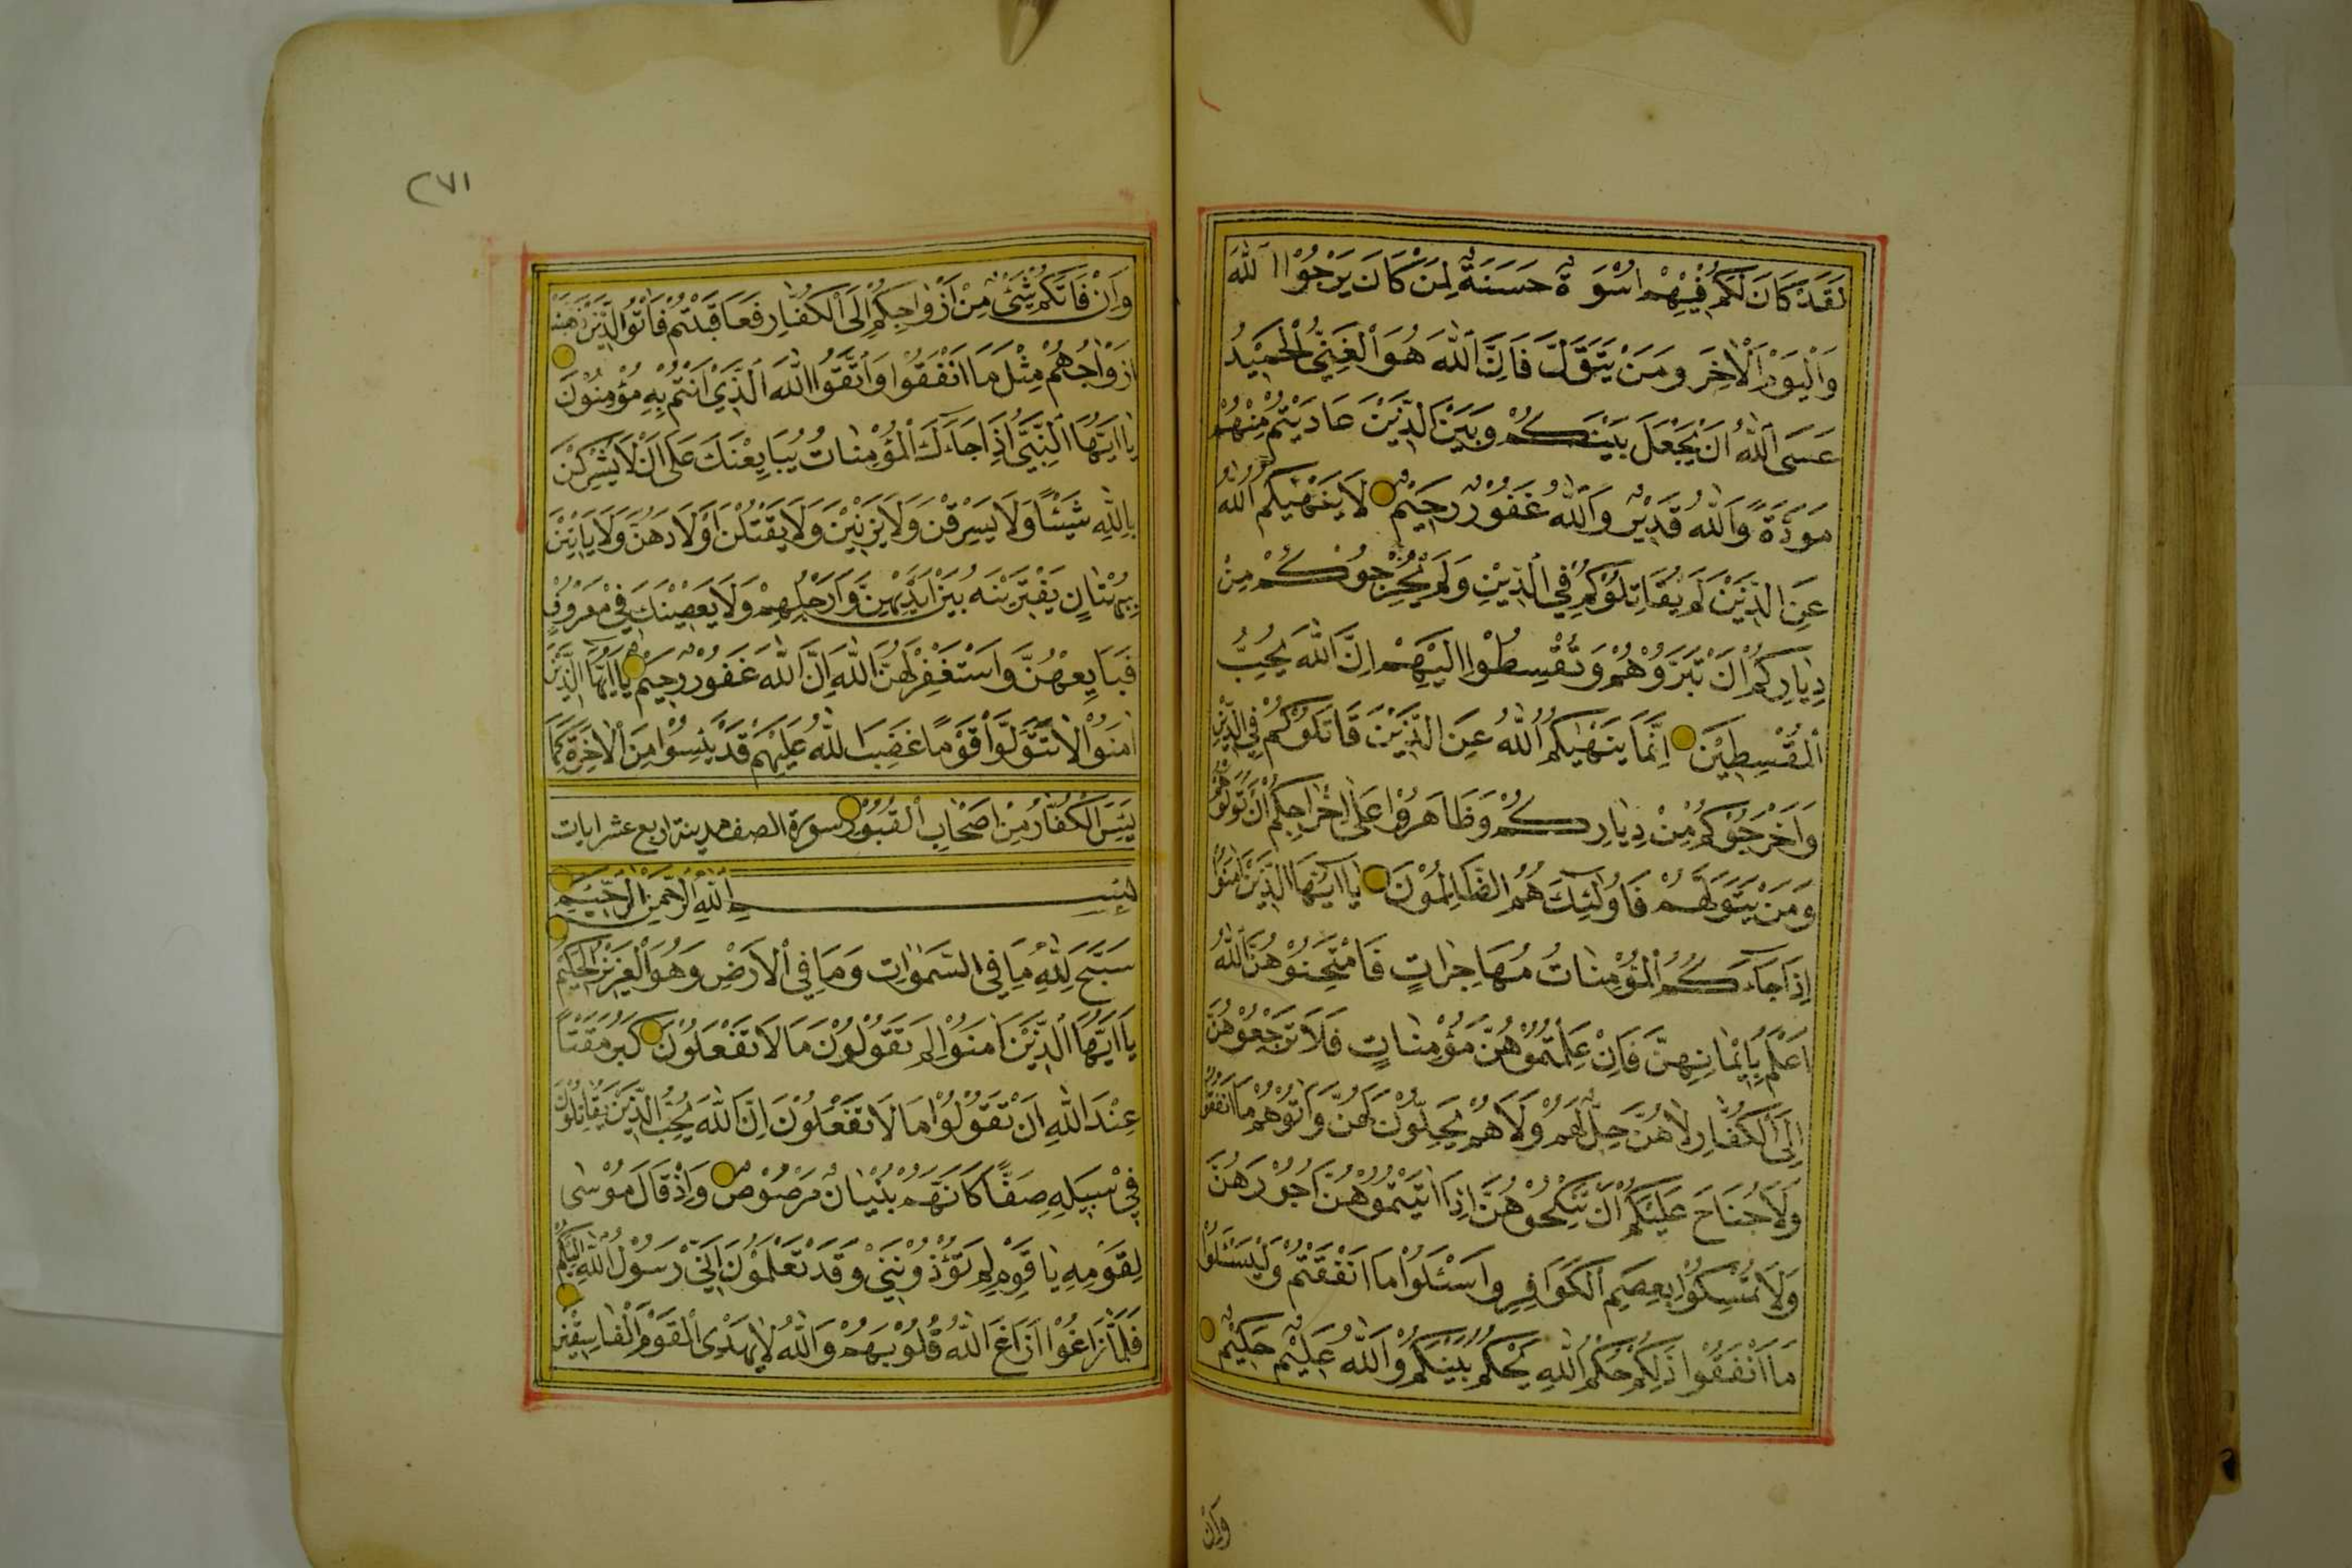 لَقَدْ كَانَ لَكُمْ فِيْهِمْ اُسْوَةٌ حَسَنَةٌ لِمَنْ كَانَ يَرْجُوْا اللّٰهَ
وَالْيَوْمَ الْاٰخِرَ وَمَنْ يَتَوَلَّ فَاِنَّ اللّٰهَ هُوَ الْغَنِيُّ الْحَمِيْدُ
عَسَى اللّٰهُ اَنْ يَجْعَلَ بَيْنَكُمْ وَبَيْنَ الَّذِيْنَ عَادَيْتُمْ مِنْهُمْ
مَوَدَّةً وَاللّٰهُ قَدِيْرٌ وَاللّٰهُ غَفُوْرٌ رَحِيْمٌ لَا يَنْهٰيكُمُ اللّٰهُ
عَنِ الَّذِيْنَ لَمْ يُقَاتِلُوْكُمْ فِي الدِّيْنِ وَلَمْ يُخْرِجُوْكُمْ مِنْ
دِيَارِكُمْ اَنْ تَبَرُّوْهُمْ وَتُقْسِطُوْا اِلَيْهِمْ اِنَّ اللّٰهَ يُحِبُّ
الْمُقْسِطِيْنَ اِنَّمَا يَنْهٰيكُمُ اللّٰهُ عَنِ الَّذِيْنَ قَاتَلُوْكُمْ فِي الدِّيْنِ
وَاَخْرَجُوْكُمْ مِنْ دِيَارِكُمْ وَظَاهَرُوْا عَلٰى اِخْرَاجِكُمْ اَنْ تَوَلَّوْهُمْ
وَمَنْ يَتَوَلَّهُمْ فَاُولٰئِكَ هُمُ الظَّالِمُوْنَ يَا اَيُّهَا الَّذِيْنَ اٰمَنُوْا
اِذَا جَآءَكُمُ الْمُؤْمِنَاتُ مُهَاجِرَاتٍ فَامْتَحِنُوْهُنَّ اللّٰهُ
اَعْلَمُ بِاِيْمَانِهِنَّ فَاِنْ عَلِمْتُمُوْهُنَّ مُؤْمِنَاتٍ فَلَا تَرْجِعُوْهُنَّ
اِلَى الْكُفَّارِ لَا هُنَّ حِلٌّ لَهُمْ وَلَا هُمْ يَحِلُّوْنَ لَهُنَّ وَاٰتُوْهُمْ مَا اَنْفَقُوْا
وَلَا جُنَاحَ عَلَيْكُمْ اَنْ تَنْكِحُوْهُنَّ اِذَا اٰتَيْتُمُوْهُنَّ اُجُوْرَهُنَّ
وَلَا تُمْسِكُوْا بِعِصَمِ الْكَوَافِرِ وَاسْئَلُوْا مَا اَنْفَقْتُمْ وَلْيَسْئَلُوْا
مَا اَنْفَقُوْا ذٰلِكُمْ حُكْمُ اللّٰهِ يَحْكُمُ بَيْنَكُمْ وَاللّٰهُ عَلِيْمٌ حَكِيْمٌ
وَاِنْ
٢٧١
وَاِنْ فَاتَكُمْ شَيْئٌ مِنْ اَزْوَاجِكُمْ اِلَى الْكُفَّارِ فَعَاقَبْتُمْ فَاٰتُوا الَّذِيْنَ ذَهَبَتْ
اَزْوَاجُهُمْ مِثْلَ مَا اَنْفَقُوْا وَاتَّقُوا اللّٰهَ الَّذِيْ اَنْتُمْ بِهِ مُؤْمِنُوْنَ
يَا اَيُّهَا النَّبِيُّ اِذَا جَآءَكَ الْمُؤْمِنَاتُ يُبَايِعْنَكَ عَلٰى اَنْ لَا يُشْرِكْنَ
بِاللّٰهِ شَيْئًا وَلَا يَسْرِقْنَ وَلَا يَزْنِيْنَ وَلَا يَقْتُلْنَ اَوْلَادَهُنَّ وَلَا يَاْتِيْنَ
بِبُهْتَانٍ يَفْتَرِيْنَهُ بَيْنَ اَيْدِيْهِنَّ وَاَرْجُلِهِنَّ وَلَا يَعْصِيْنَكَ فِيْ مَعْرُوْفٍ
فَبَايِعْهُنَّ وَاسْتَغْفِرْ لَهُنَّ اللّٰهَ اِنَّ اللّٰهَ غَفُوْرٌ رَحِيْمٌ يَا اَيُّهَا الَّذِيْنَ
اٰمَنُوْا لَا تَتَوَلَّوْا قَوْمًا غَضِبَ اللّٰهُ عَلَيْهِمْ قَدْ يَئِسُوْا مِنَ الْاٰخِرَةِ كَمَا
يَئِسَ الْكُفَّارُ مِنْ اَصْحَابِ الْقُبُوْرِ سورة الصف مدينة اربع عشر ايات
بِسْمِ اللّٰهِ الرَّحْمٰنِ الرَّحِيْمِ
سَبَّحَ لِلّٰهِ مَا فِي السَّمٰوَاتِ وَمَا فِي الْاَرْضِ وَهُوَ الْعَزِيْزُ الْحَكِيْمُ
يَا اَيُّهَا الَّذِيْنَ اٰمَنُوْا لِمَ تَقُوْلُوْنَ مَا لَا تَفْعَلُوْنَ كَبُرَ مَقْتًا
عِنْدَ اللّٰهِ اَنْ تَقُوْلُوْا مَا لَا تَفْعَلُوْنَ اِنَّ اللّٰهَ يُحِبُّ الَّذِيْنَ يُقَاتِلُوْنَ
فِيْ سَبِيْلِهِ صَفًّا كَاَنَّهُمْ بُنْيَانٌ مَرْصُوْصٌ وَاِذْ قَالَ مُوْسٰى
لِقَوْمِهِ يَا قَوْمِ لِمَ تُؤْذُوْنَنِيْ وَقَدْ تَعْلَمُوْنَ اَنِّيْ رَسُوْلُ اللّٰهِ اِلَيْكُمْ
فَلَمَّا زَاغُوْا اَزَاغَ اللّٰهُ قُلُوْبَهُمْ وَاللّٰهُ لَا يَهْدِى الْقَوْمَ الْفَاسِقِيْنَ